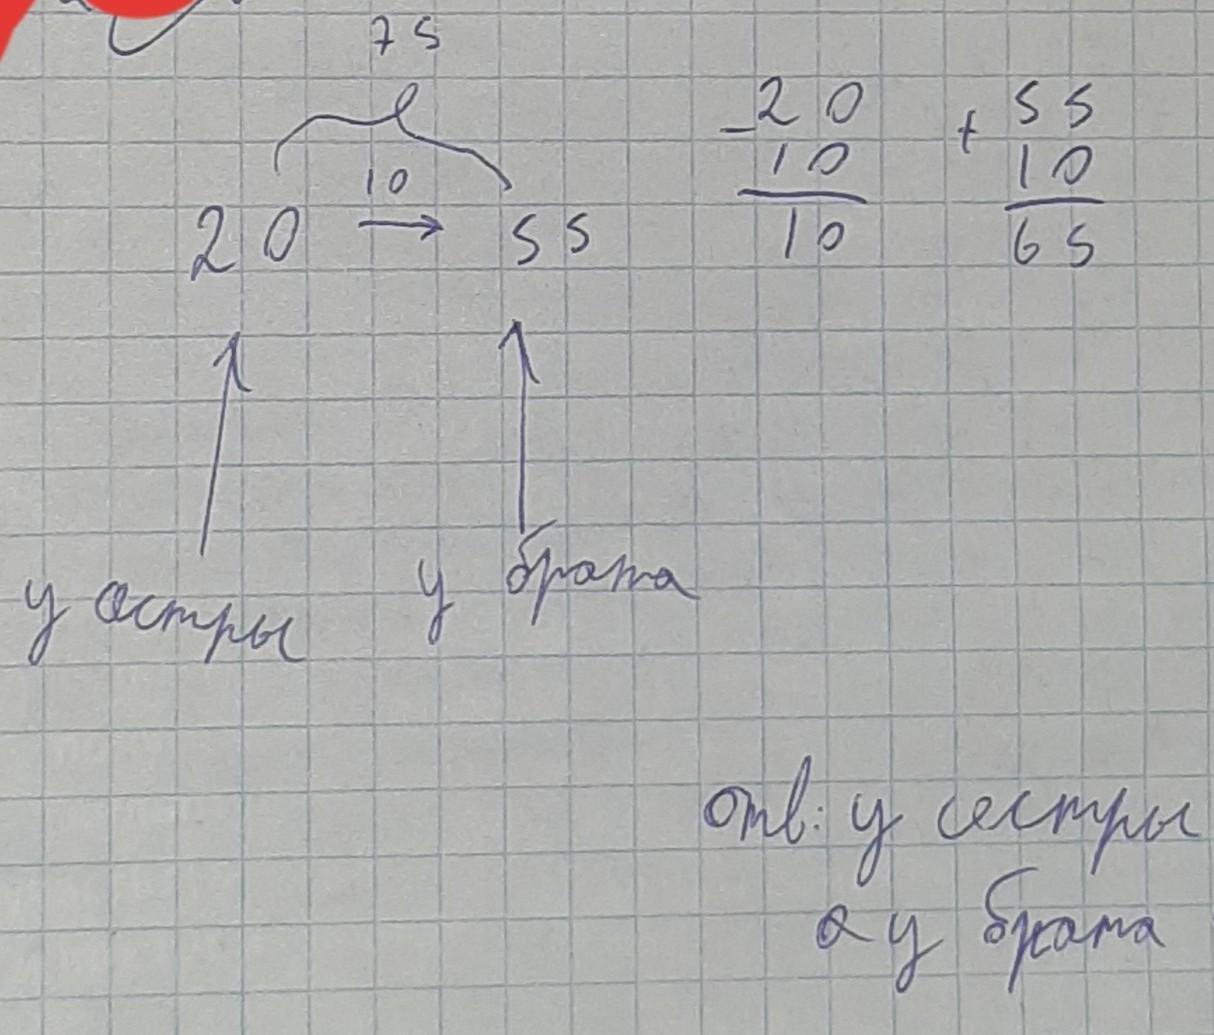 75
10
20 → 55
- 20
10
10
+ 55
10
65
у сестры у брата
Отв: у сестры
а у брата